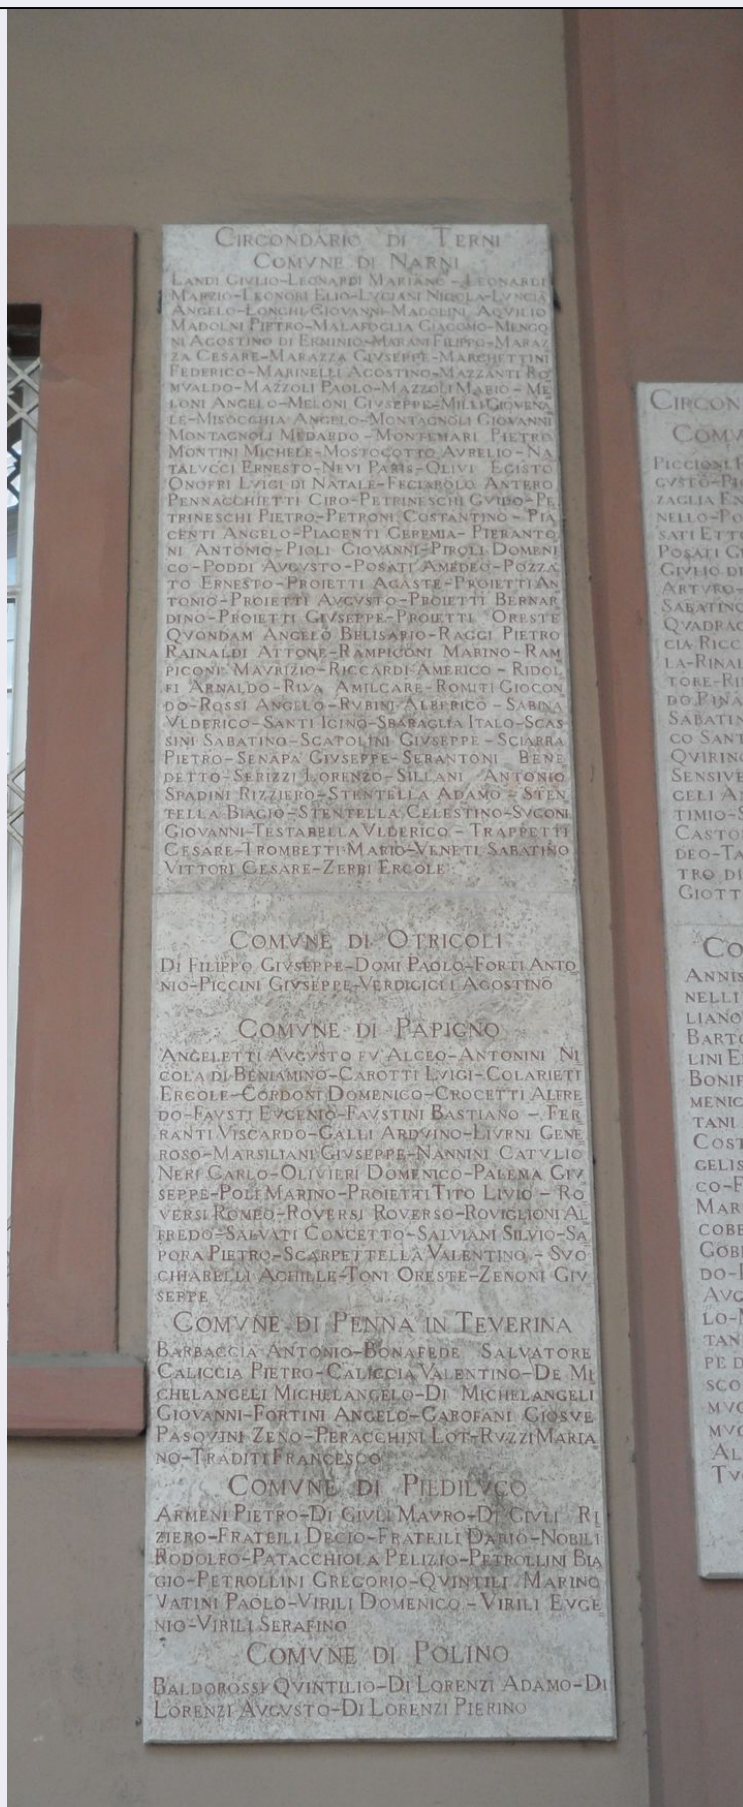 CIRCONDARIO DI TERNI
COMVNE DI NARNI
LANDI GIVLIO-LEONARDI MARIANO-LEONARDI
MARZIO-LEONORI ELIO-LVCIANI NICOLA-LVNCIA
ANGELO-LONGHI GIOVANNI-MADOLINI AQVILIO
MADOLNI PIETRO-MALAFOGLIA GIACOMO-MENGO
NI AGOSTINO DI ERMINIO-MARANI FILIPPO-MARAZ
ZA CESARE-MARAZZA GIVSEPPE-MARCHETTINI
FEDERICO-MARINELLI AGOSTINO-MAZZANTI RO
MVALDO-MAZZOLI PAOLO-MAZZOLI MARIO-ME
LONI ANGELO-MELONI GIVSEPPE-MILLI GIOVENA
LE-MISOCCHIA ANGELO-MONTAGNOLI GIOVANNI
MONTAGNOLI MEDARDO-MONTEMARI PIETRO
MONTINI MICHELE-MOSTOCOTTO AVRELIO-NA
TALVCCI ERNESTO-NEVI PARIS-OLIVI EGISTO
ONOFRI LVIGI DI NATALE-FECIAROLO ANTERO
PENNACCHIETTI CIRO-PETRINESCHI GVIDO-PE
TRINESCHI PIETRO-PETRONI COSTANTINO-PIA
CENTI ANGELO-PIACENTI GEREMIA-PIERANTO
NI ANTONIO-PIOLI GIOVANNI-PIROLI DOMENI
CO-PODDI AVGVSTO-POSATI AMEDEO-POZZA
TO ERNESTO-PROIETTI AGASTE-PROIETTI AN
TONIO-PROIETTI AVGVSTO-PROIETTI BERNAR
DINO-PROIETTI GIVSEPPE-PROIETTI ORESTE
QVONDAM ANGELO BELISARIO-RAGGI PIETRO
RAINALDI ATTONE-RAMPICONI MARINO-RAM
PICONI MAVRIZIO-RICCARDI AMERICO-RIDOL
FI ARNALDO-RIVA AMILCARE-ROMITI GIOCON
DO-ROSSI ANGELO-RVBINI ALBERICO-SABINA
VLDERICO-SANTI IGINO-SBARAGLIA ITALO-SCAS
SINI SABATINO-SCATOLINI GIVSEPPE-SCIARRA
PIETRO-SENAPA GIVSEPPE-SERANTONI BENE
DETTO-SERIZZI LORENZO-SILLANI ANTONIO
SPADINI RIZZIERO-STENTELLA ADAMO-STEN
TELLA BIAGIO-STENTELLA CELESTINO-SVGONI
GIOVANNI-TESTARELLA VLDERICO-TRAPPETTI
CESARE-TROMBETTI MARIO-VENETI SABATINO
VITTORI CESARE-ZERBI ERCOLE
COMVNE DI OTRICOLI
DI FILIPPO GIVSEPPE-DOMI PAOLO-FORTI ANTO
NIO-PICCINI GIVSEPPE-VERDICIGLI AGOSTINO
COMVNE DI PAPIGNO
ANGELETTI AVGVSTO FV ALCEO-ANTONINI NI
COLA DI BENIAMINO-CAROTTI LVIGI-COLARIETI
ERCOLE-CORDONI DOMENICO-CROCETTI ALFRE
DO-FAVSTI EVGENIO-FAVSTINI BASTIANO-FER
RANTI VISCARDO-GALLI ARDVINO-LIVRNI GENE
ROSO-MARSILIANI GIVSEPPE-NANNINI CATVLIO
NERI CARLO-OLIVIERI DOMENICO-PALEMA GIV
SEPPE-POLI MARINO-PROIETTI TITO LIVIO-RO
VERSI ROMEO-ROVERSI ROVERSO-ROVIGLIONI AL
FREDO-SALVATI CONCETTO-SALVIANI SILVIO-SA
PORA PIETRO-SCARPETTELLA VALENTINO-SVO
CHIARELLI ACHILLE-TONI ORESTE-ZENONI GIV
SEPPE
COMVNE DI PENNA IN TEVERINA
BARBACCIA ANTONIO-BONAFEDE SALVATORE
CALICCIA PIETRO-CALICCIA VALENTINO-DE MI
CHELANGELI MICHELANGELO-DI MICHELANGELI
GIOVANNI-FORTINI ANGELO-GAROFANI GIOSVE
PASQVINI ZENO-PERACCHINI LOT-RVZZI MARIA
NO-TRADITI FRANCESCO
COMVNE DI PIEDILVCO
ARMENI PIETRO-DI GIVLI MAVRO-DI GIVLI RI
ZIERO-FRATEILI DECIO-FRATEILI DARIO-NOBILI
RODOLFO-PATACCHIOLA PELIZIO-PETROLLINI BIA
GIO-PETROLLINI GREGORIO-QVINTILI MARINO
VATINI PAOLO-VIRILI DOMENICO-VIRILI EVGE
NIO-VIRILI SERAFINO
COMVNE DI POLINO
BALDOROSSI QVINTILIO-DI LORENZI ADAMO-DI
LORENZI AVGVSTO-DI LORENZI PIERINO